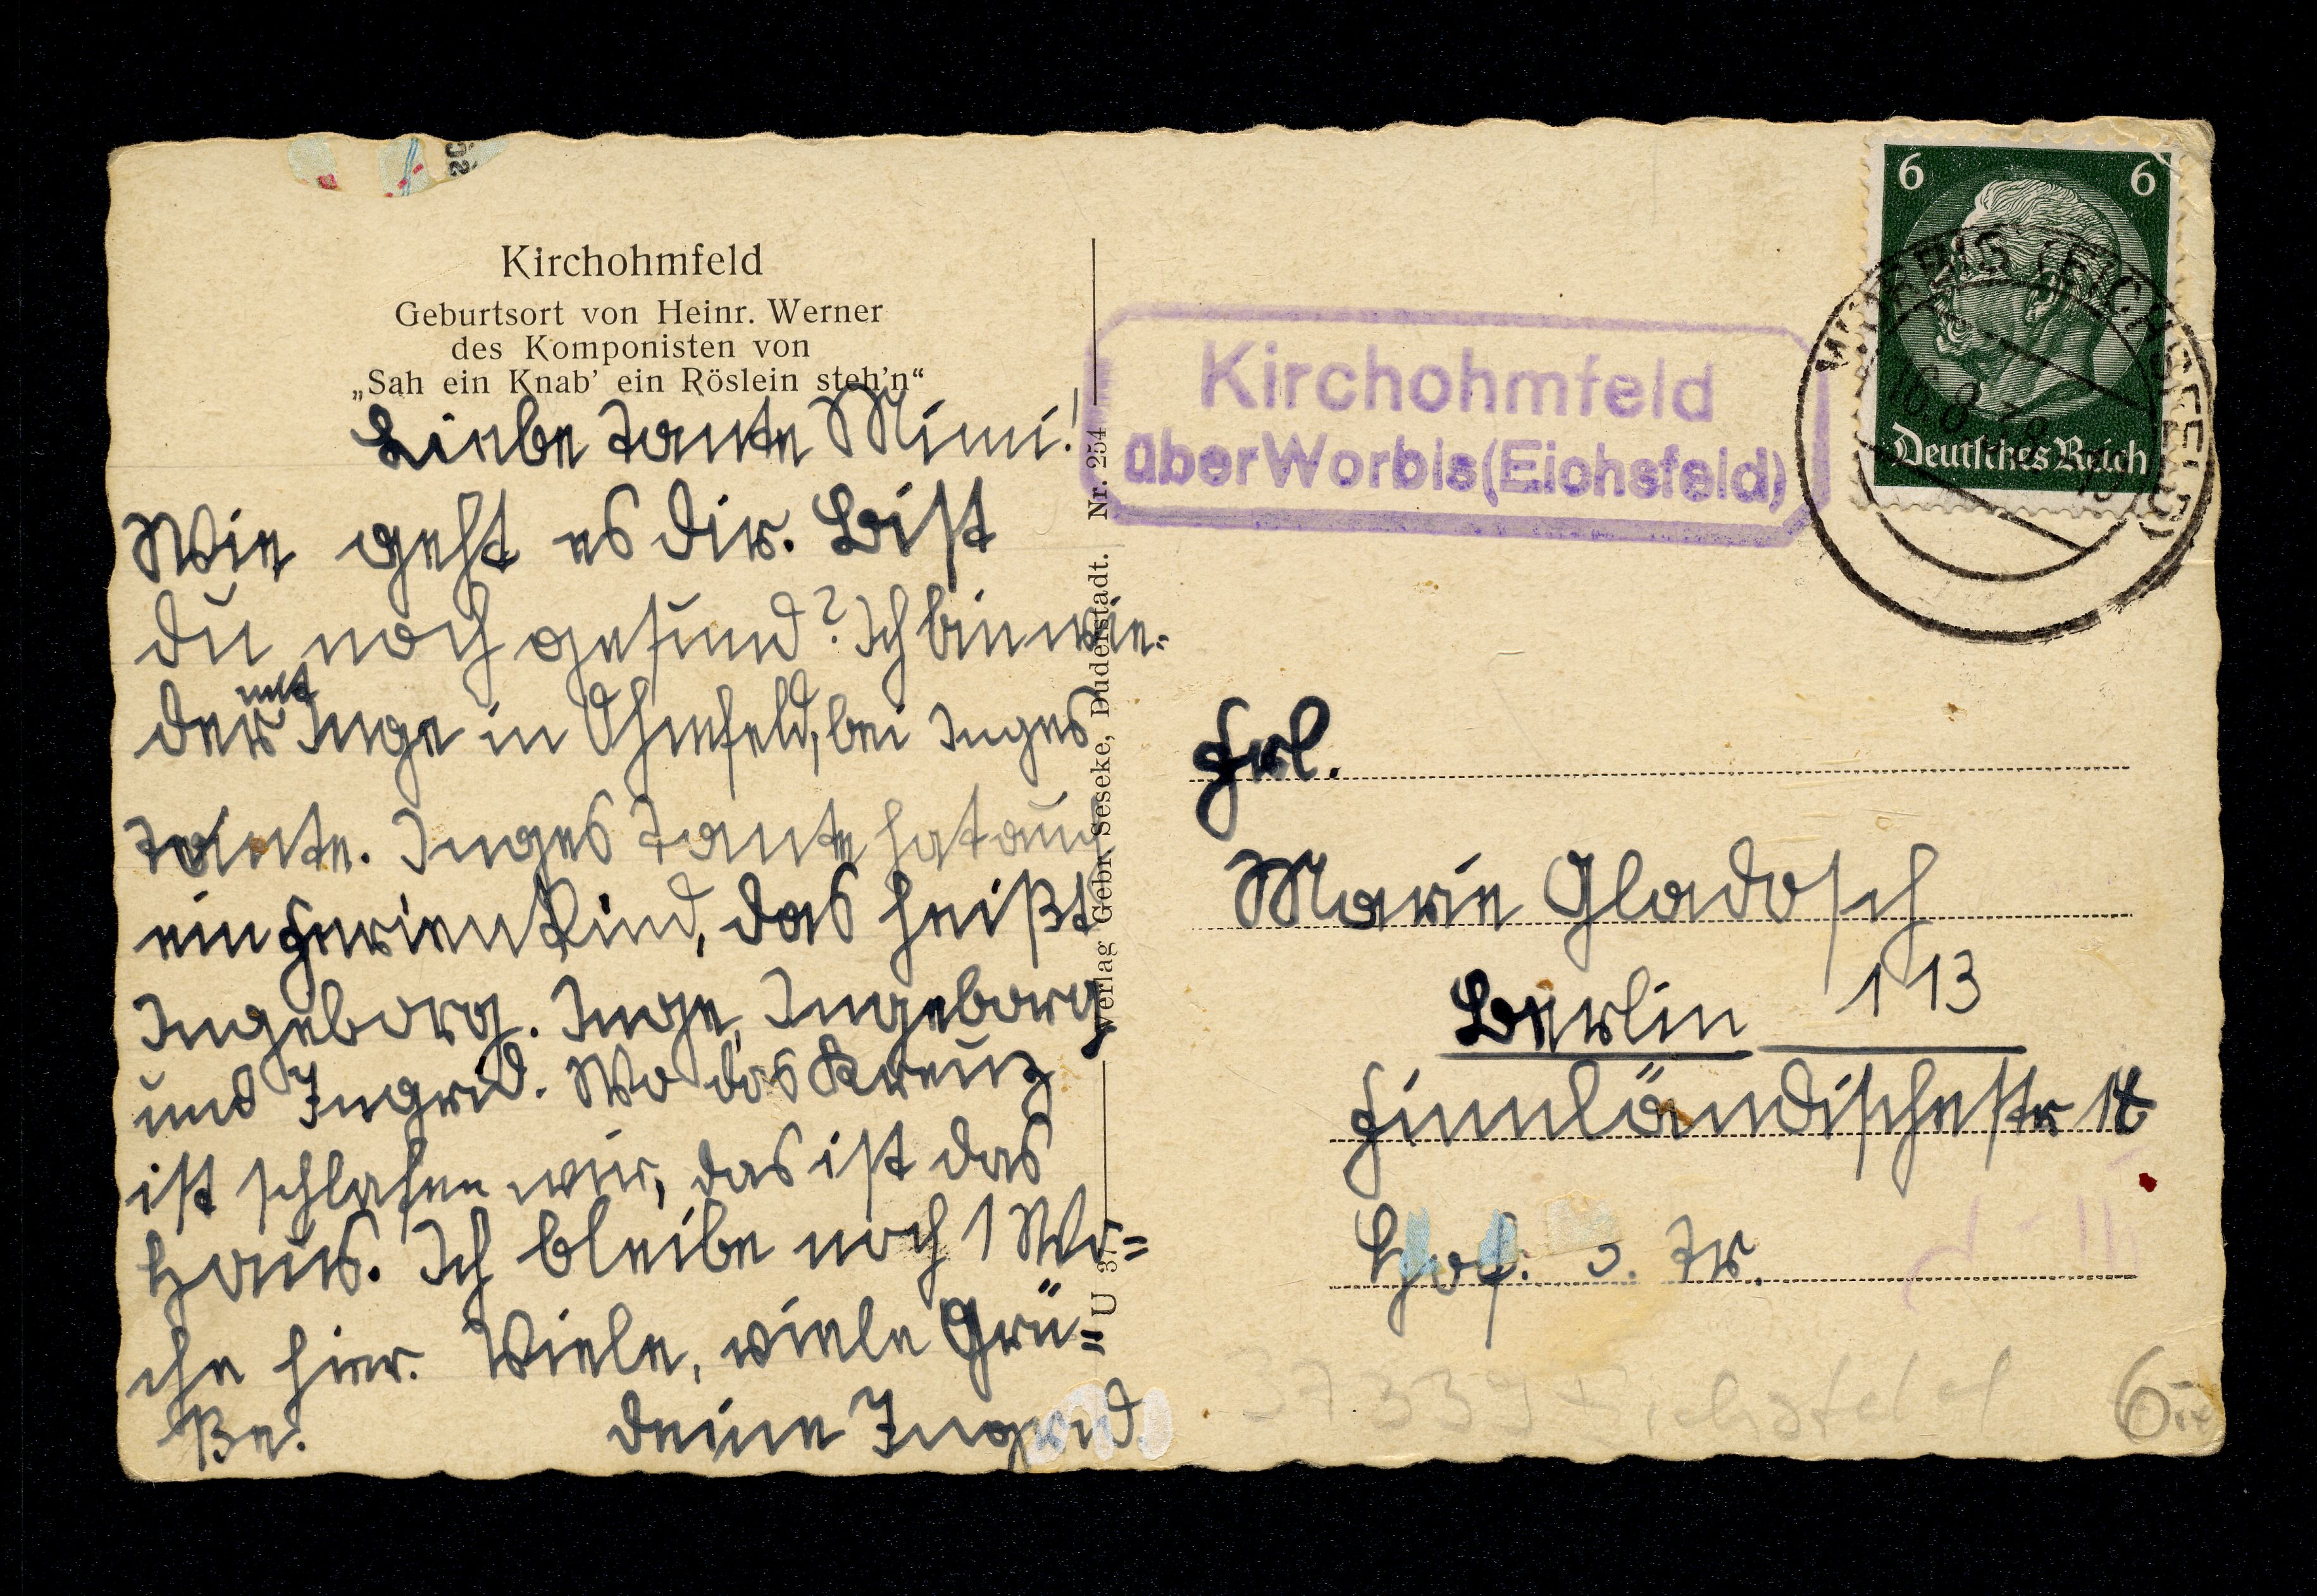 Kirchohmfeld
Geburtsort von Heinr. Werner
des Komponisten von
„Sah ein Knab' ein Röslein steh'n“
Liebe Tante Mimi!
Wie geht es dir. Bist
du noch gesund? Ich bin wie-
der mit Inge in Ohmfeld, bei Inges
Tante. Inges Tante hat auch
ein Ferienkind, das heißt
Ingeborg. Inge, Ingeborg
und Ingrid. Wo das Kreuz
ist schlafen wir, das ist das
Haus. Ich bleibe noch 1 Wo=
che hier. Viele, viele Grü=
ße.
deine Ingrid.
Verlag Gebr. Seseke, Duderstadt. Nr. 254
U 37
Kirchohmfeld
über Worbis (Eichsfeld)
6 6
Deutsches Reich
WORBIS (EICHSFELD)
16.8.38
Frl.
Marie Gladosch
Berlin 113
Finnländischestr 14
Hof. 3. Tr.
37339
52